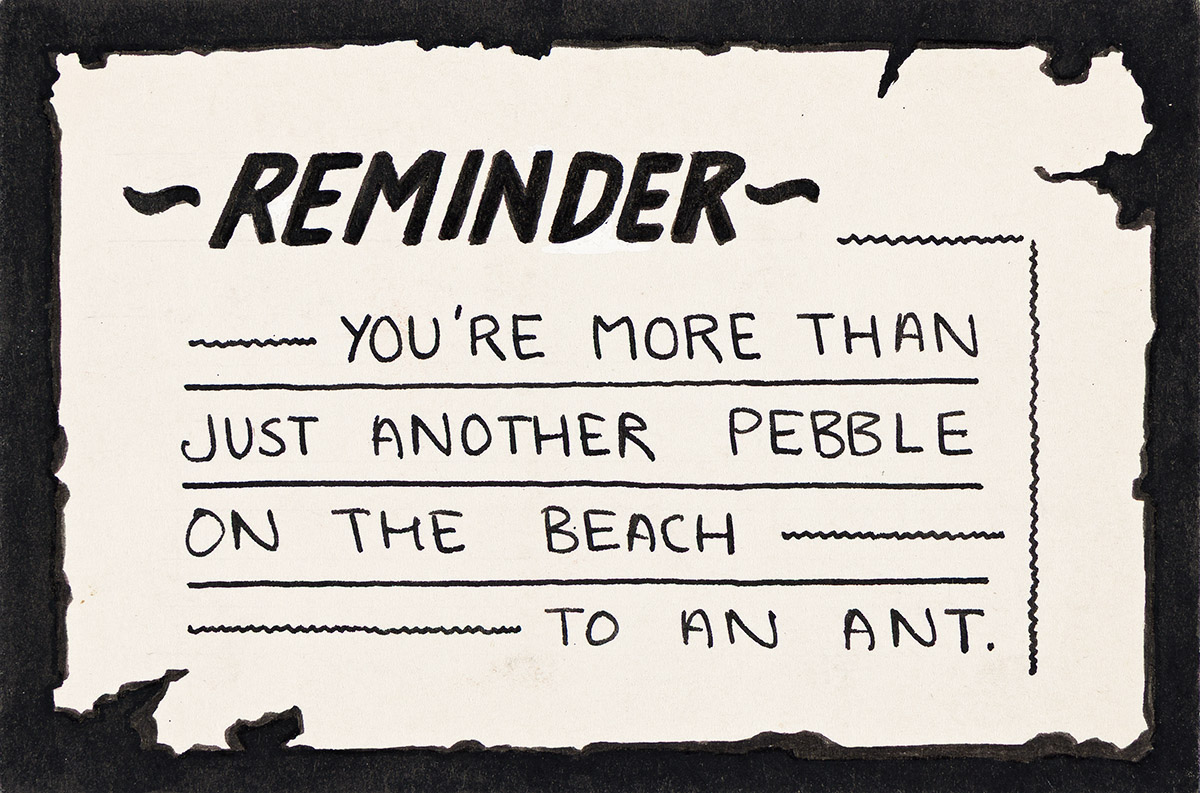 ~REMINDER~
YOU'RE MORE THAN
JUST ANOTHER PEBBLE
ON THE BEACH
TO AN ANT.